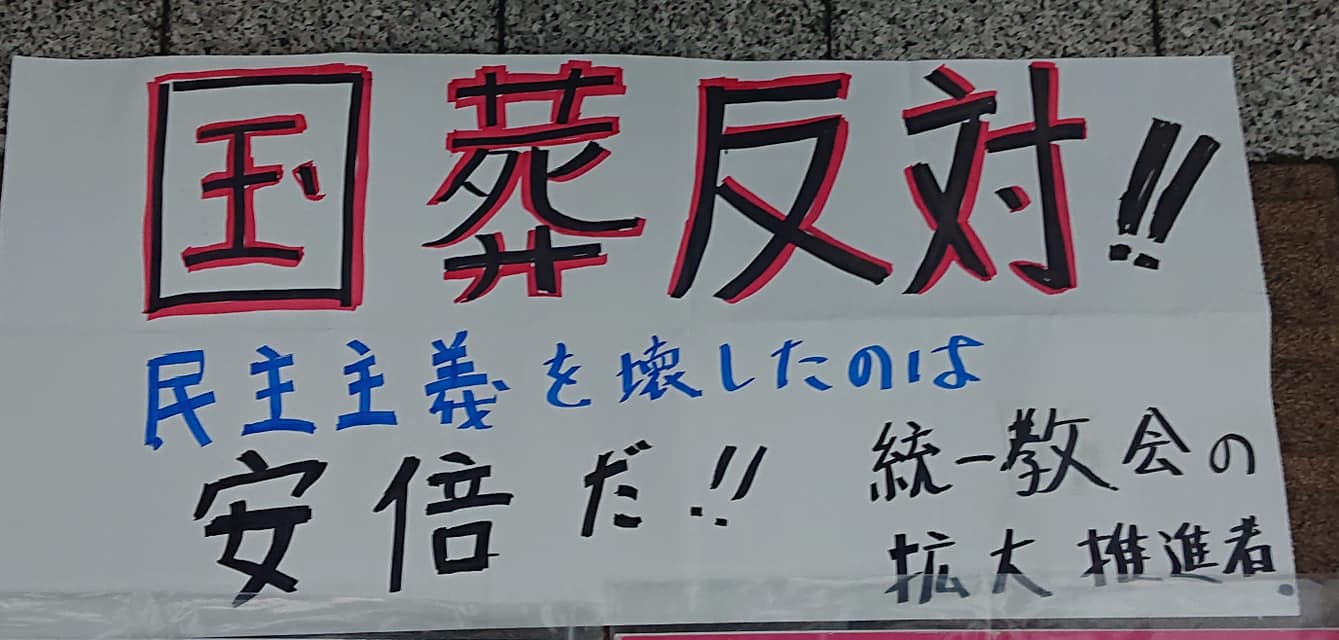 国葬反対!!
民主主義を壊したのは
安倍だ!!
統一教会の
拡大推進者.